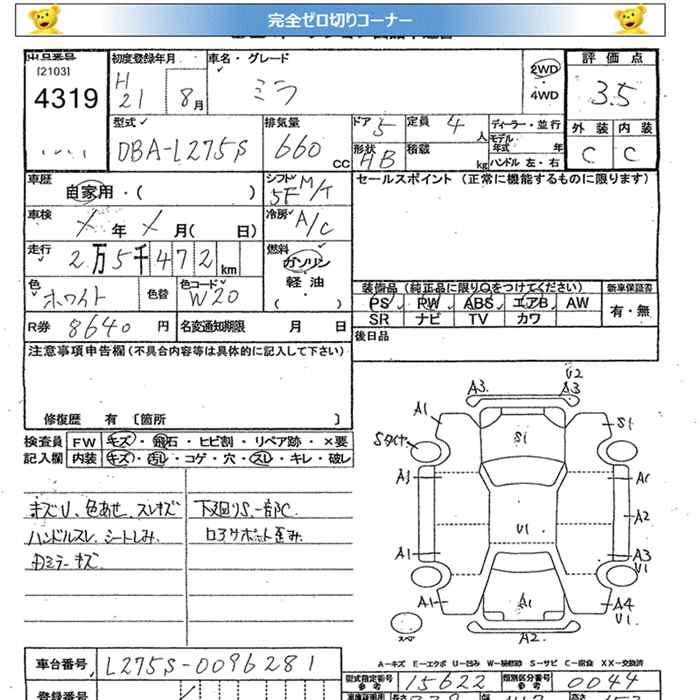 完全ゼロ切りコーナー
出品番号
[2103]
4319
初度登録年月
H
21 8月
車名・グレード
ミラ
2WD
・
4WD
評価点
3.5
外装 内装
C C
型式
DBA-L275S
排気量
660 CC
ドア 5
形状
HB
定員 4人
積載 kg
ディーラー・並行
モデル年式 年
ハンドル 左・右
車歴
自家用・( )
シフト
5F M/T
セールスポイント (正常に機能するものに限ります)
車検
X年 X月( 日)
冷房
A/C
走行
2万5千472km
燃料
ガソリン
・
軽油
( )
色
ホワイト
色替
色コード
W20
装備品(純正品に限り○をつけてください)
新車保証書
PS PW ABS エアB AW
SR ナビ TV カワ
有・無
R券 8640円
名変通知期限 月 日
後日品
注意事項申告欄(不具合内容等は具体的に記入して下さい)
修復歴 有 〔箇所 〕
検査員
記入欄
FW キズ・飛石・ヒビ割・リペア跡・×要
内装 キズ・汚レ・コゲ・穴・スレ・キレ・破レ
キズU、色あせ、スレキズ
ハンドルスレ、シートしみ、
ミラーキズ
下廻りS、一部C
コアサポート歪み
U2
A3 A3
A1 S1
S1
Sタイヤ
A1 A1
A2
U1
A1 A3
U1
A1 A1 A4
U1
スペア
A2
A-キズ E-エクボ U-凹み W-補修跡 S-サビ C-腐食 XX-交換済
車台番号 L275S-0096281
型式指定番号
参考
15622
類別区分番号
参考
0044
登録番号
長さ
高さ